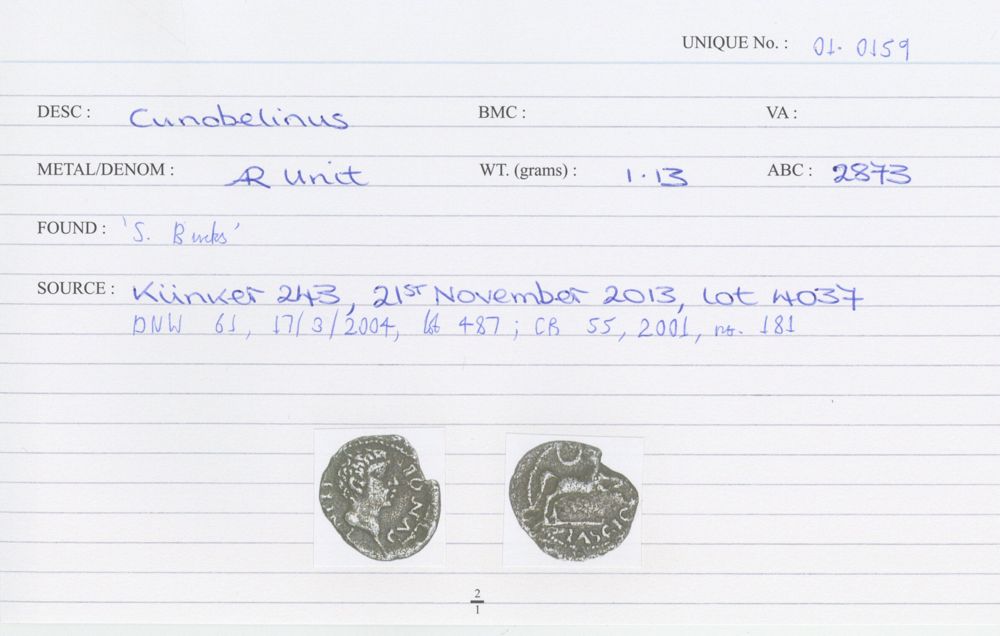 UNIQUE No. : 01. 0159
DESC : Cunobelinus BMC : VA :
METAL/DENOM : AR Unit WT. (grams) : 1.13 ABC : 2873
FOUND : 'S. Bucks'
SOURCE : Künker 243, 21ST November 2013, Lot 4037
DNW 61, 17/3/2004, lot 487 ; CR 55, 2001, no. 181
2
1